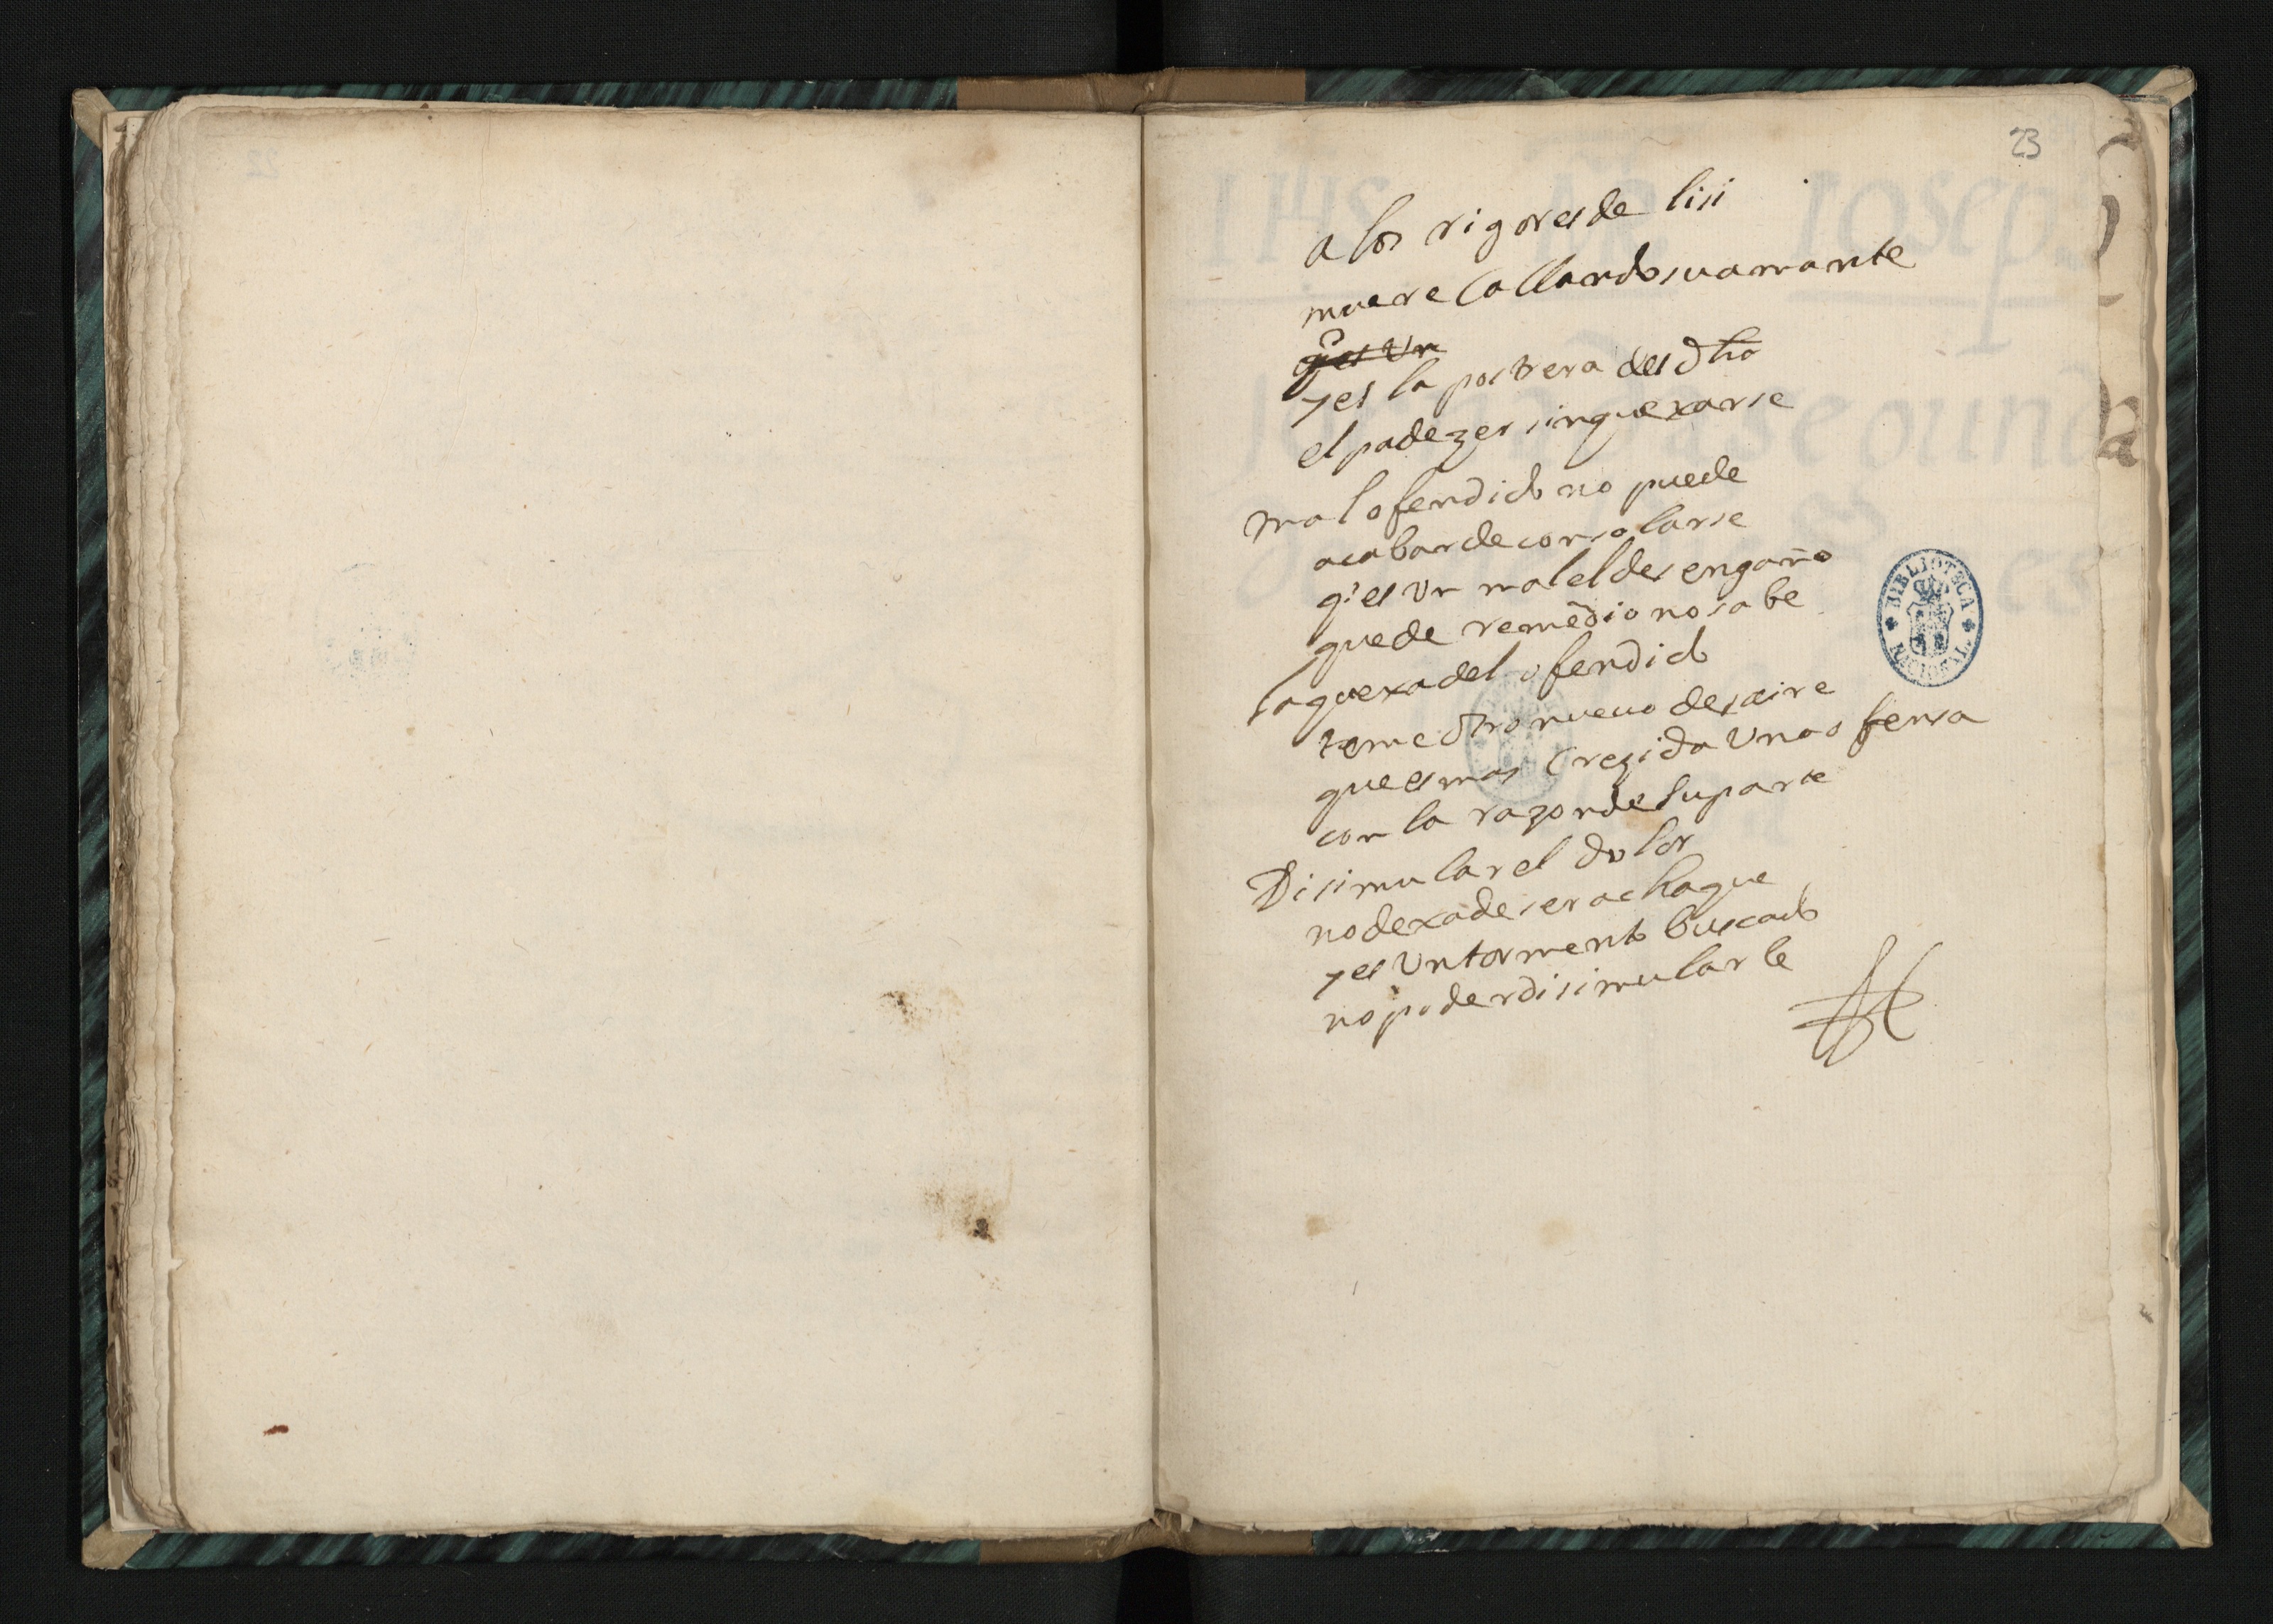 23
a los rigores de lisi
muere Callando su amante
q̃ es Vn
y es la postrera desdha
el padezer sin quexarse
mal ofendido no puede
acabar de consolarse
q̃ es Vn mal el desengaño
que de remedio no sabe
la quexa del ofendido
teme otro nueuo desaire
que es mas Crezida Vna ofensa
con la razon de su parte
Disimular el dolor
no dexa de ser achaque
y es Vn tormento buscado
no poder disimularle
BIBLIOTECA NACIONAL